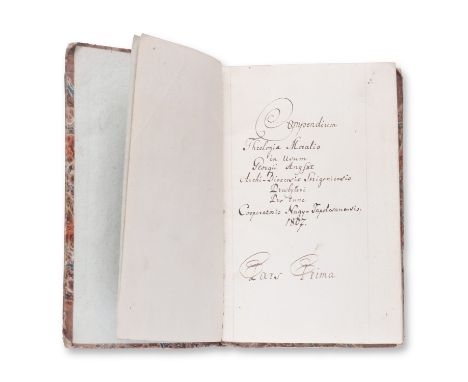 Compendium
Theologiæ Moralis
in Usum
Georgii
Archi-Dioecesis Strigoniensis
Presbyteri
Pro tunc
Cooperatoris Nagy-Tapolcsanensis.
1807.
Pars Prima